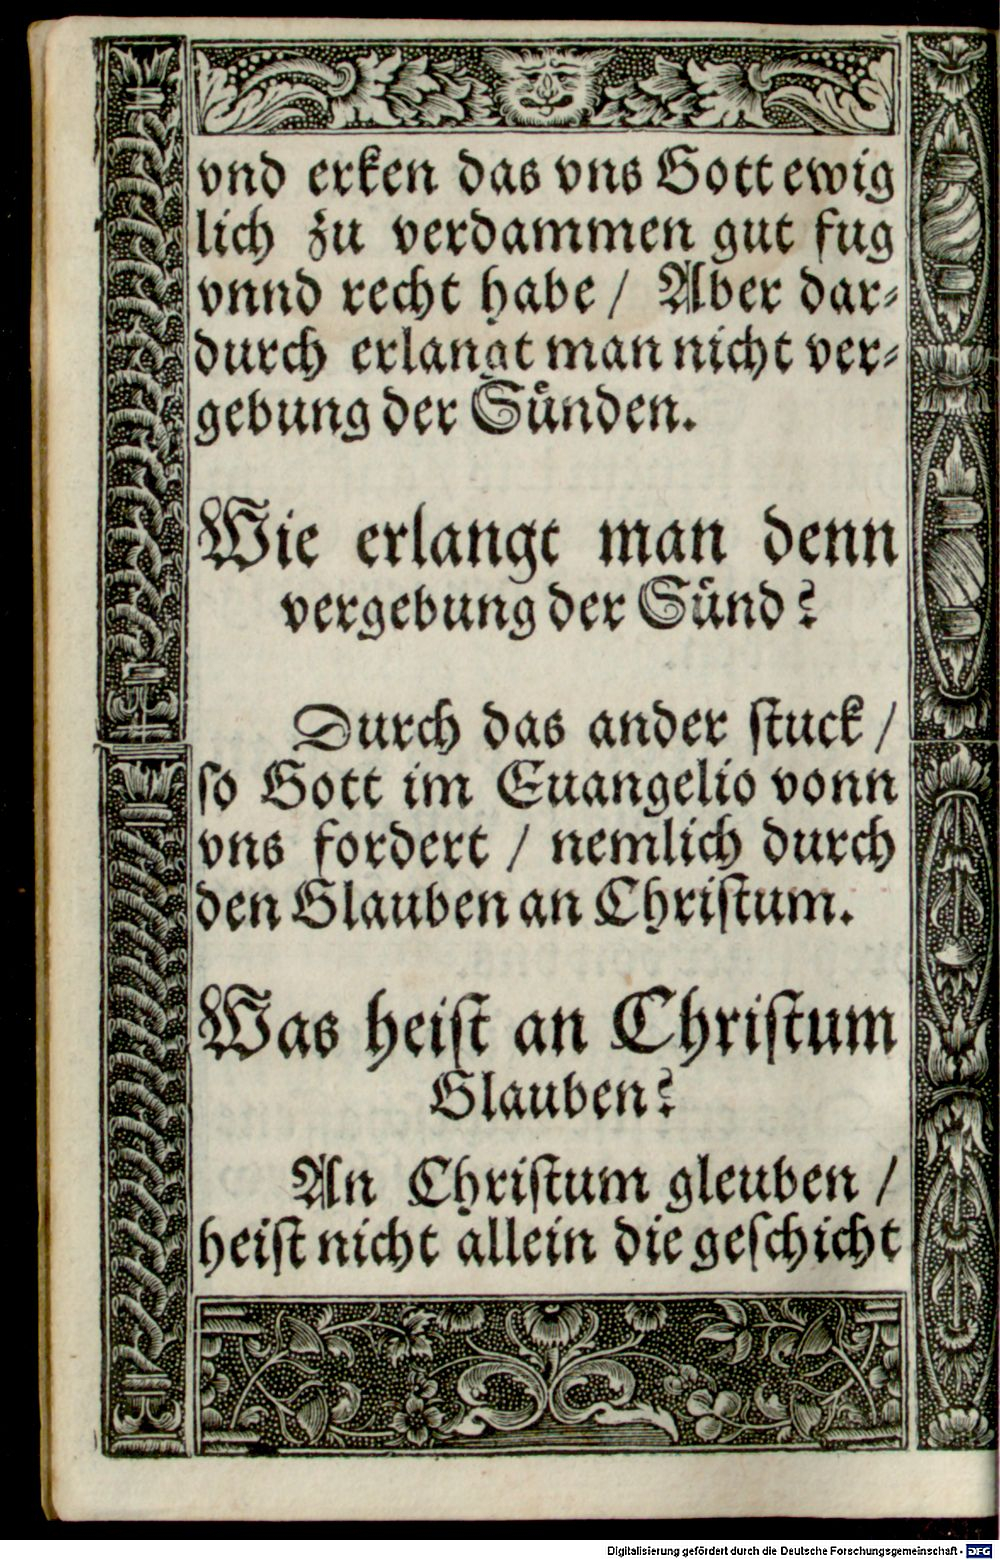 vnd erken das vns Gott ewig
lich zu verdammen gut fug
vnnd recht habe / Aber dar⸗
durch erlangt man nicht ver⸗
gebung der Sünden.
Wie erlangt man denn
vergebung der Sünd?
Durch das ander stuck /
so Gott im Euangelio vonn
vns fordert / nemlich durch
den Glauben an Christum.
Was heist an Christum
Glauben?
An Christum gleuben /
heist nicht allein die geschicht
Digitalisierung gefördert durch die Deutsche Forschungsgemeinschaft - DFG